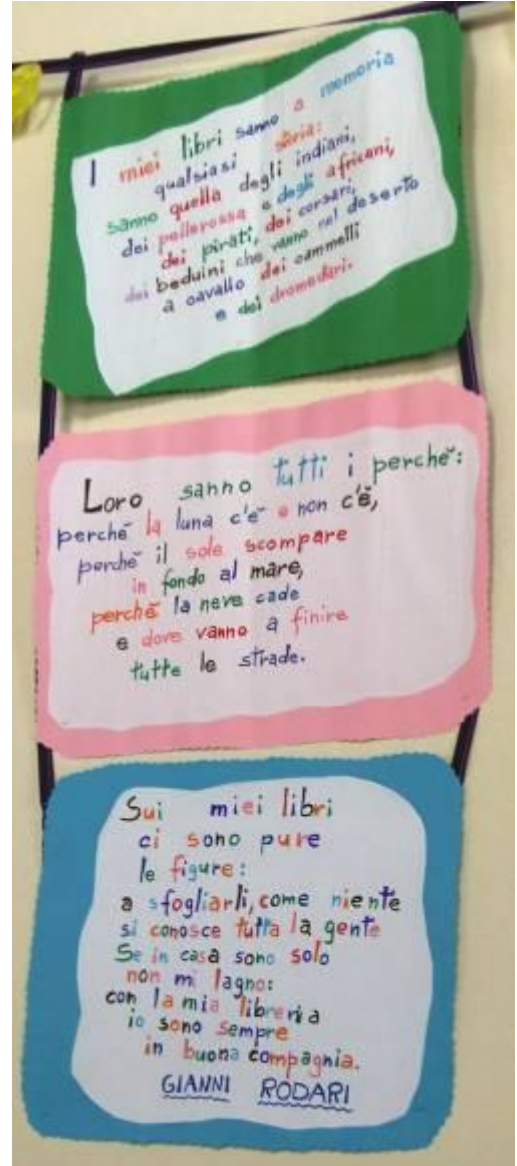 I miei libri sanno a memoria
qualsiasi storia:
sanno quella degli indiani,
dei pellerossa e degli africani,
dei pirati, dei corsari,
dei beduini che vanno nel deserto
a cavallo dei cammelli
e dei dromedari.
Loro sanno tutti i perchè:
perchè la luna c'è e non c'è,
perchè il sole scompare
in fondo al mare,
perchè la neve cade
e dove vanno a finire
tutte le strade.
Sui miei libri
ci sono pure
le figure:
a sfogliarli, come niente
si conosce tutta la gente
Se in casa sono solo
non mi lagno:
con la mia libreria
io sono sempre
in buona compagnia.
GIANNI RODARI